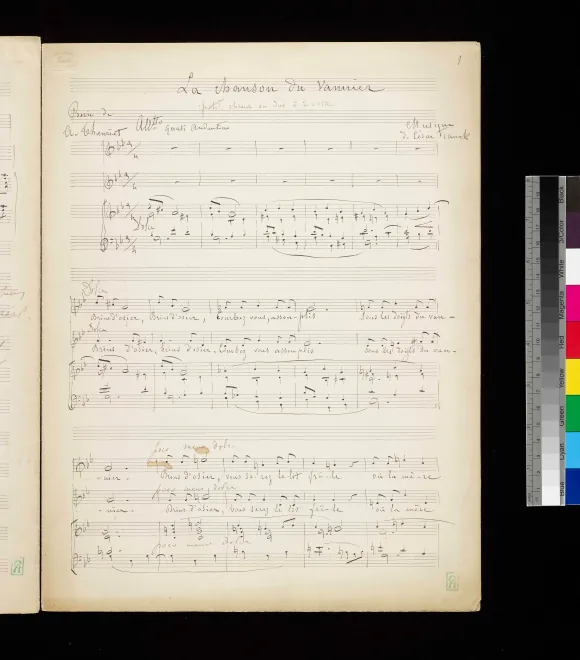 1
La chanson du Vannier
petit chœur ou duo à 2 voix
Poésie de
A. Theuriet
Alltto quasi andantino
Musique
de César Franck
Dolce
Dolce
Brins d'osier, Brins d'osier, Courbez vous, assouplis sous les doigts du van-
dolce
Brins d'osier, brins d'osier, Courbez vous assouplis sous les doigts du van-
poco meno dolce
-nier. Brins d'osier, vous serez le lit frêle où la mère
poco meno dolce
-nier. Brins d'osier, vous serez le lit frêle où la mère
poco meno dolce
Black
3/Color
White
Magenta
Red
Yellow
Green
Cyan
Blue